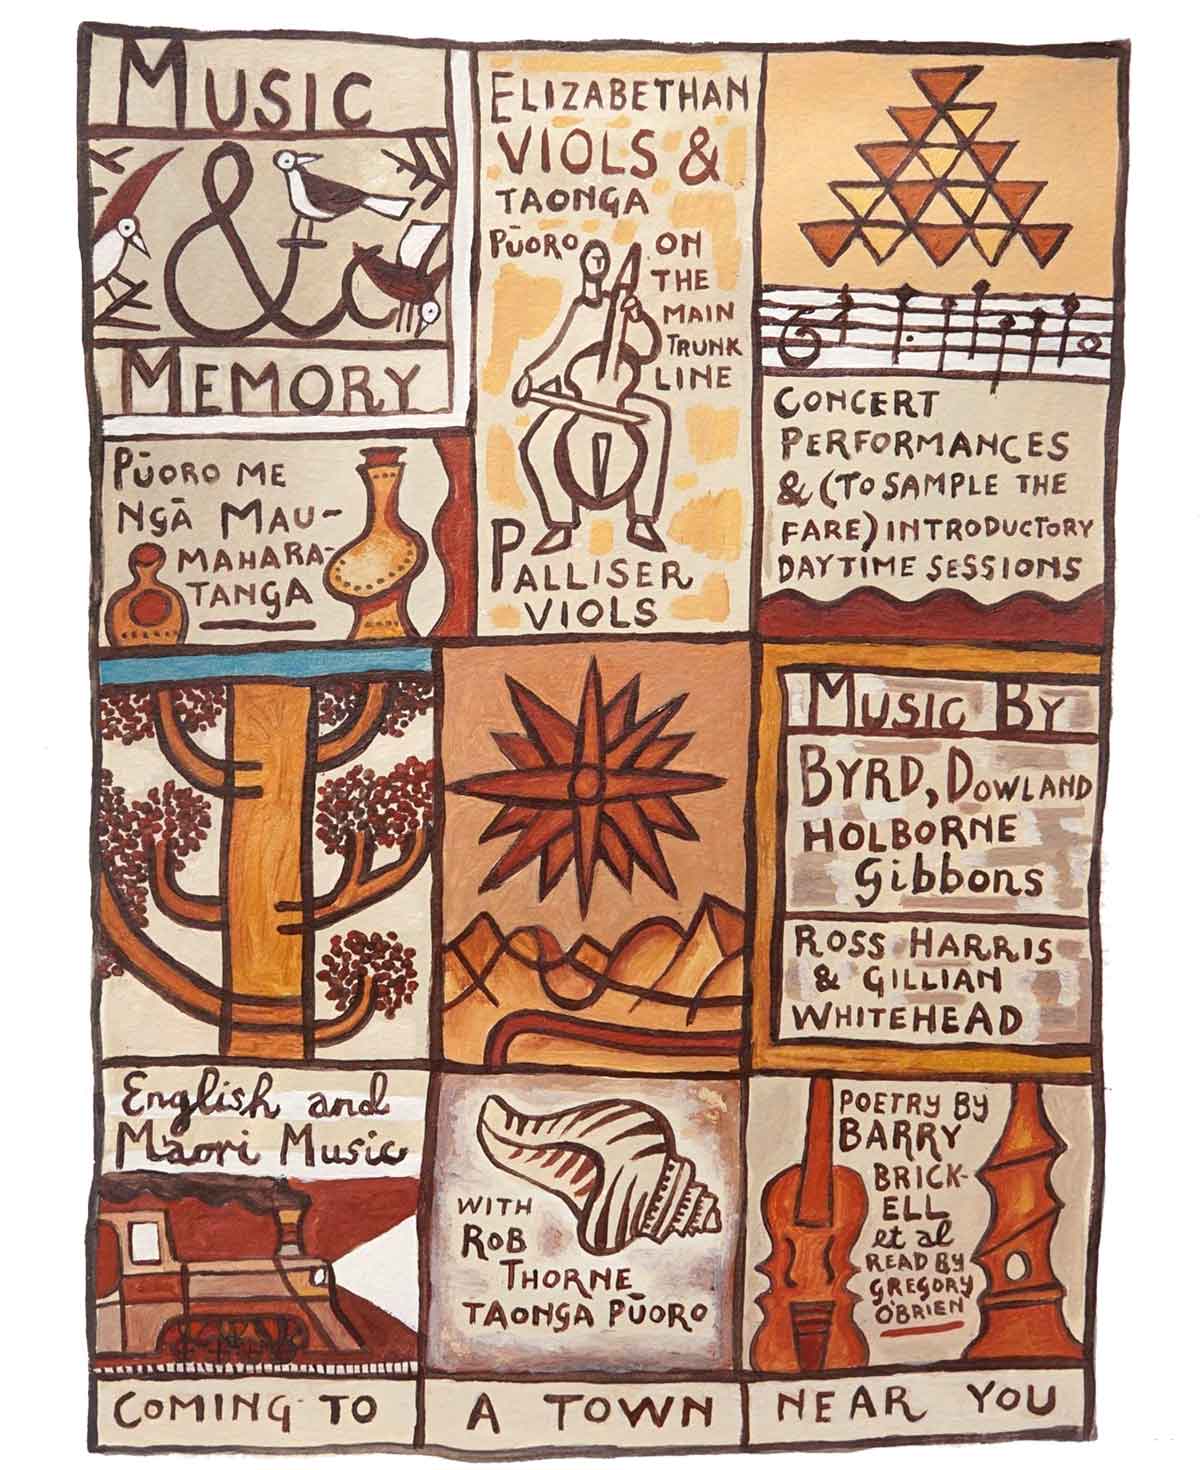 MUSIC
&
MEMORY
PŪORO ME
NGĀ MAU-
MAHARA-
TANGA
ELIZABETHAN
VIOLS &
TAONGA
PŪORO ON
THE
MAIN
TRUNK
LINE
PALLISER
VIOLS
CONCERT
PERFORMANCES
& (TO SAMPLE THE
FARE) INTRODUCTORY
DAYTIME SESSIONS
MUSIC BY
BYRD, DOWLAND
HOLBORNE
Gibbons
ROSS HARRIS
& GILLIAN
WHITEHEAD
English and
Māori Music
WITH
ROB
THORNE
TAONGA PŪORO
POETRY BY
BARRY
BRICK-
ELL
et al
READ BY
GREGORY
O'BRIEN
COMING TO A TOWN NEAR YOU